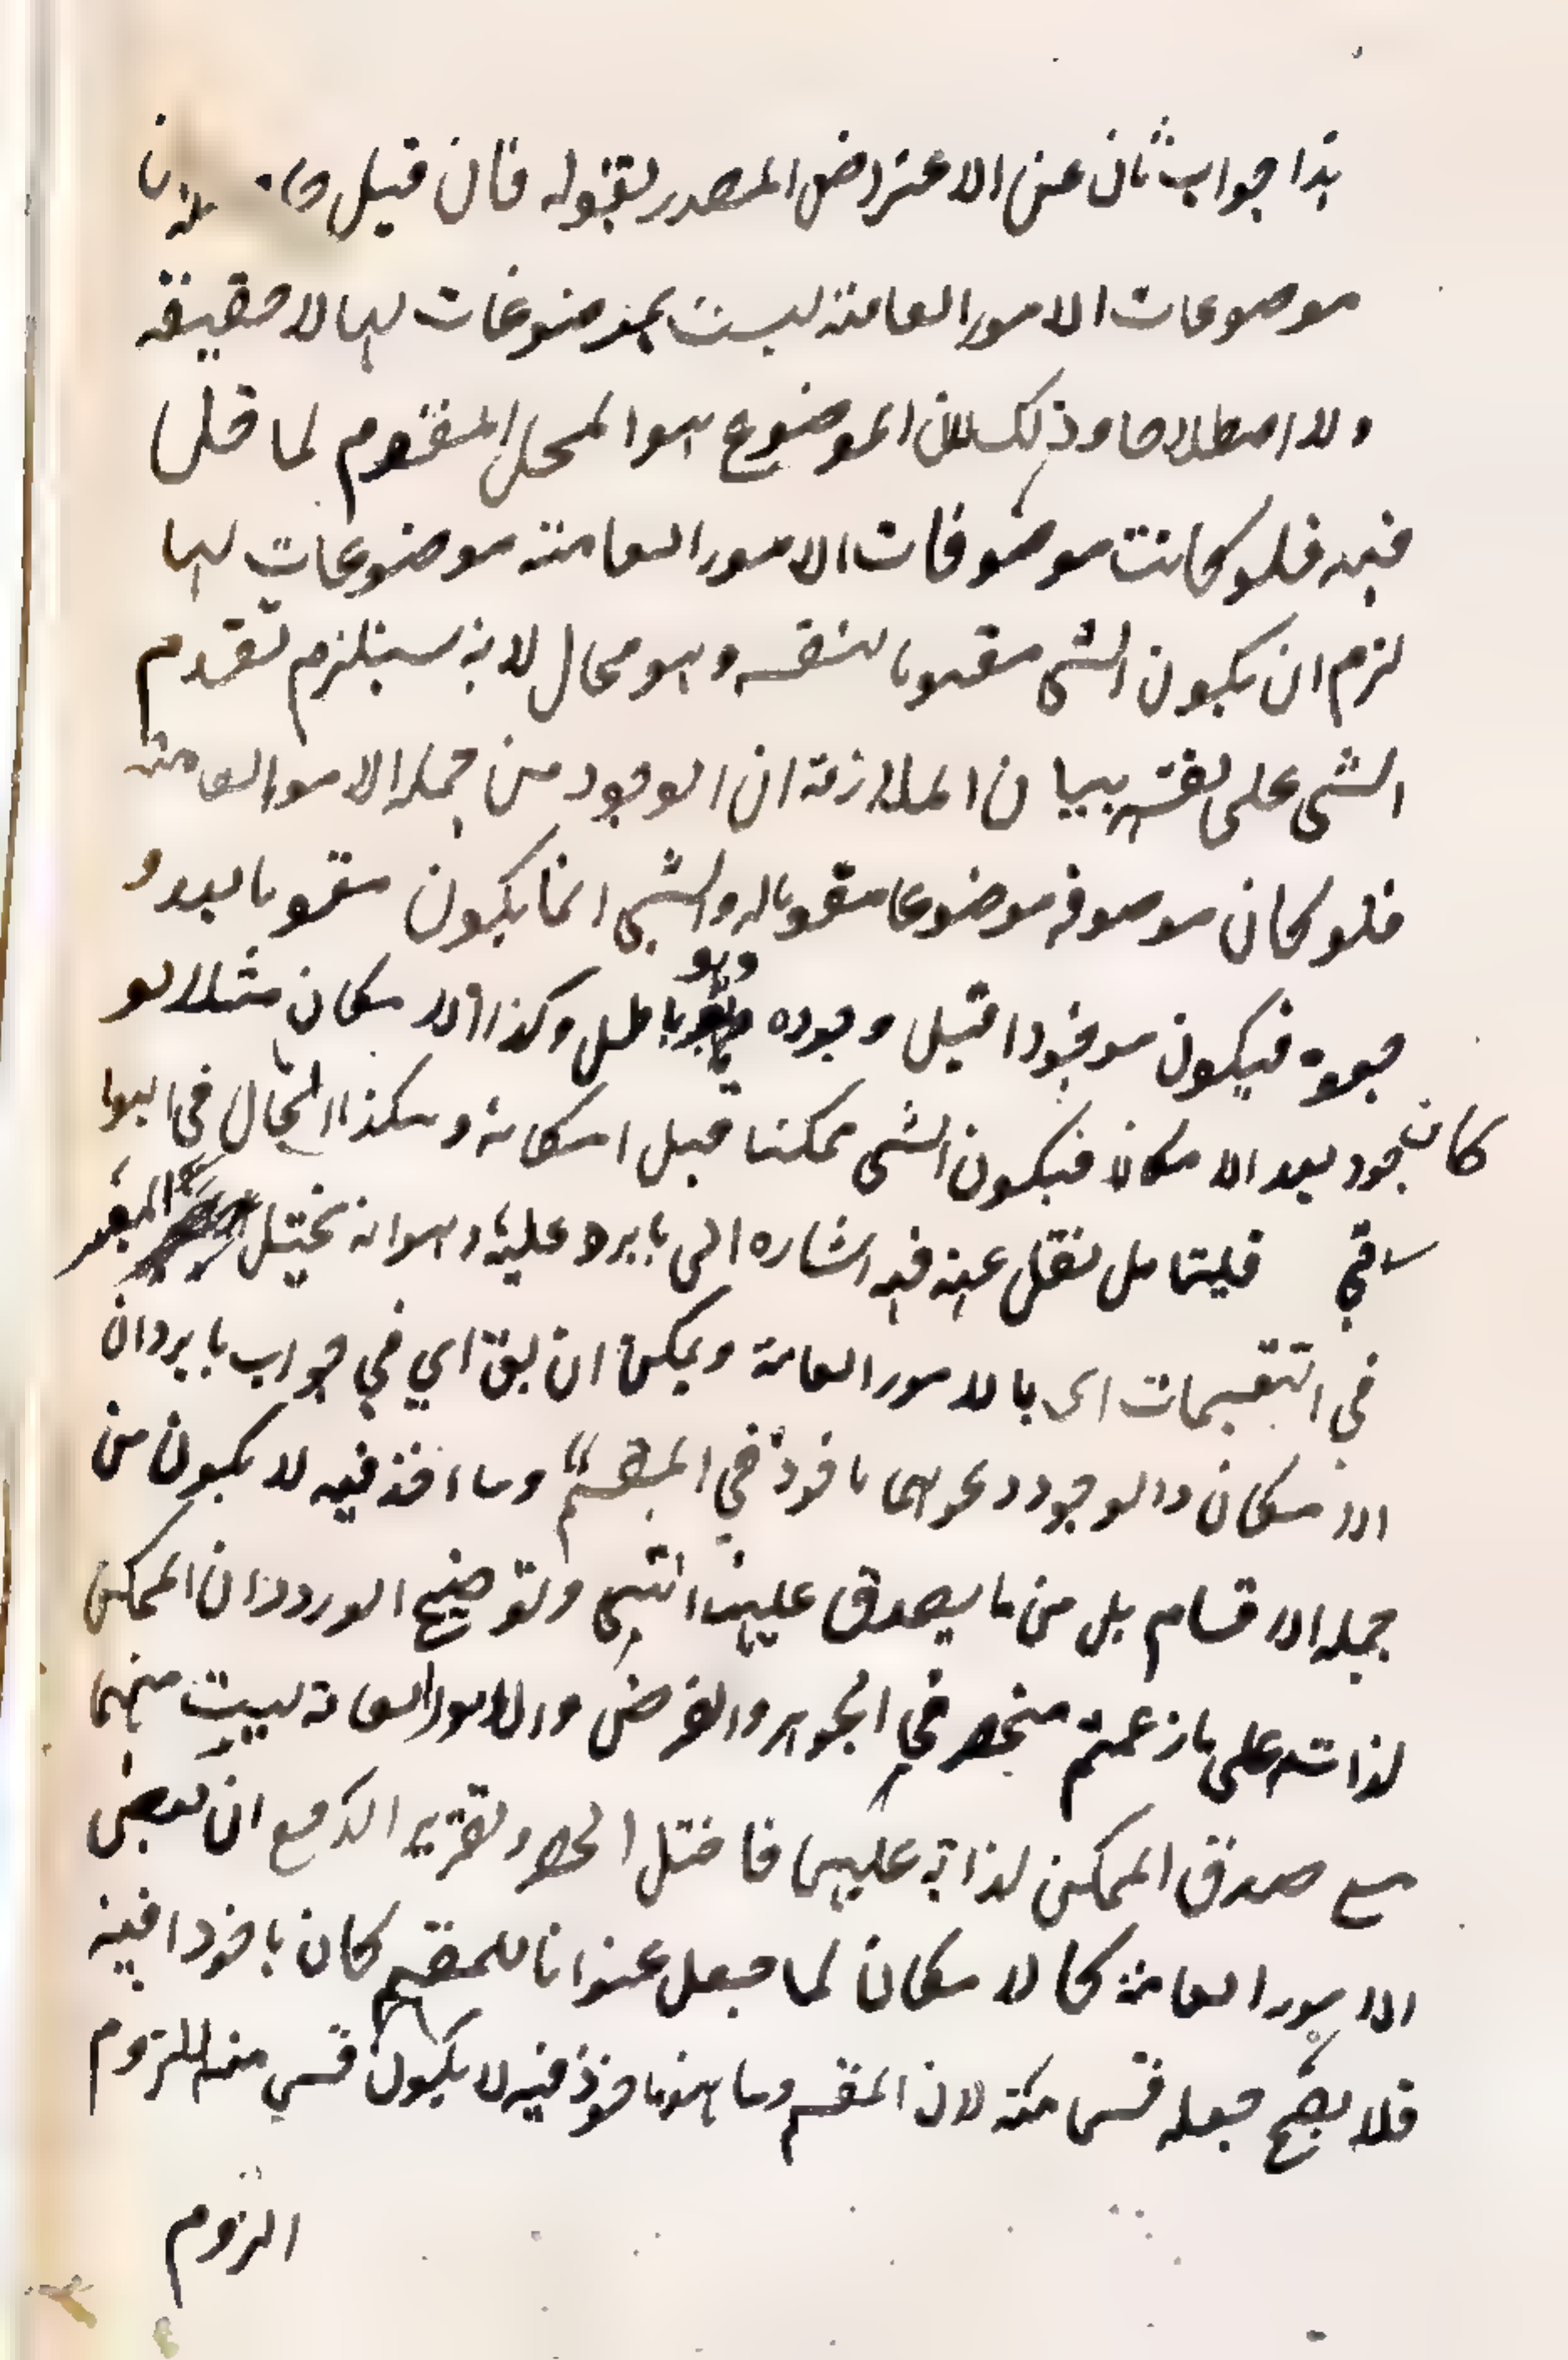 هذا جواب ثان عن الاعتراض المصدر بقوله فان قيل
موصوعات الامور العامة ليست بموضوعات لها لا حقيقة
ولا اصطلاحا وذلك لان الموضوع هو المحل المقوم لما حل
فيه فلو كانت موصوفات الامور العامة موضوعات لها
لزم ان يكون الشى مقوما لنفسه وهو محال لانه يستلزم تقدم
الشى على نفسه بيان الملازمة ان الوجود من جملة الامور العامة
فلو كان موصوفه موضوعا مقوما له والشى انما يكون مقوما بعد و
جوده فيكون موجودا قبل وجوده وهو باطل وكذا الامكان مثلا لو
كان جود بعد الامكان فيكون الشى ممكنا قبل امكانه وهكذا الحال فى البوا
قي فليتامل نقل عنه فيه اشاره الى ما يرد عليه وهو انه يختل المقر
في التقسيمات اى بالامور العامة ويمكن ان يق اي في جواب ما يرد ان
الامكان والوجود ونحوهما ماخوذ في المقسم وما اخذ فيه لا يكون من
جملة الاقسام بل من ما يصدق عليه انتهى وتوضيح الورود ان الممكن
لذاته على ما زعمتم منحصر في الجوهر والعرض والامور العامة ليست منهما
مع صدق الممكن لذاته عليها فاختل الحصر وتقرير الدفع ان بعض
الامور العامة كالامكان لما جعل عنوانا للمقسم كان ماخوذا فيه
فلا يصح جعله قسما منه لان المقسم وما هو ماخوذ فيه لا يكون قسمي منه للزوم
الزوم